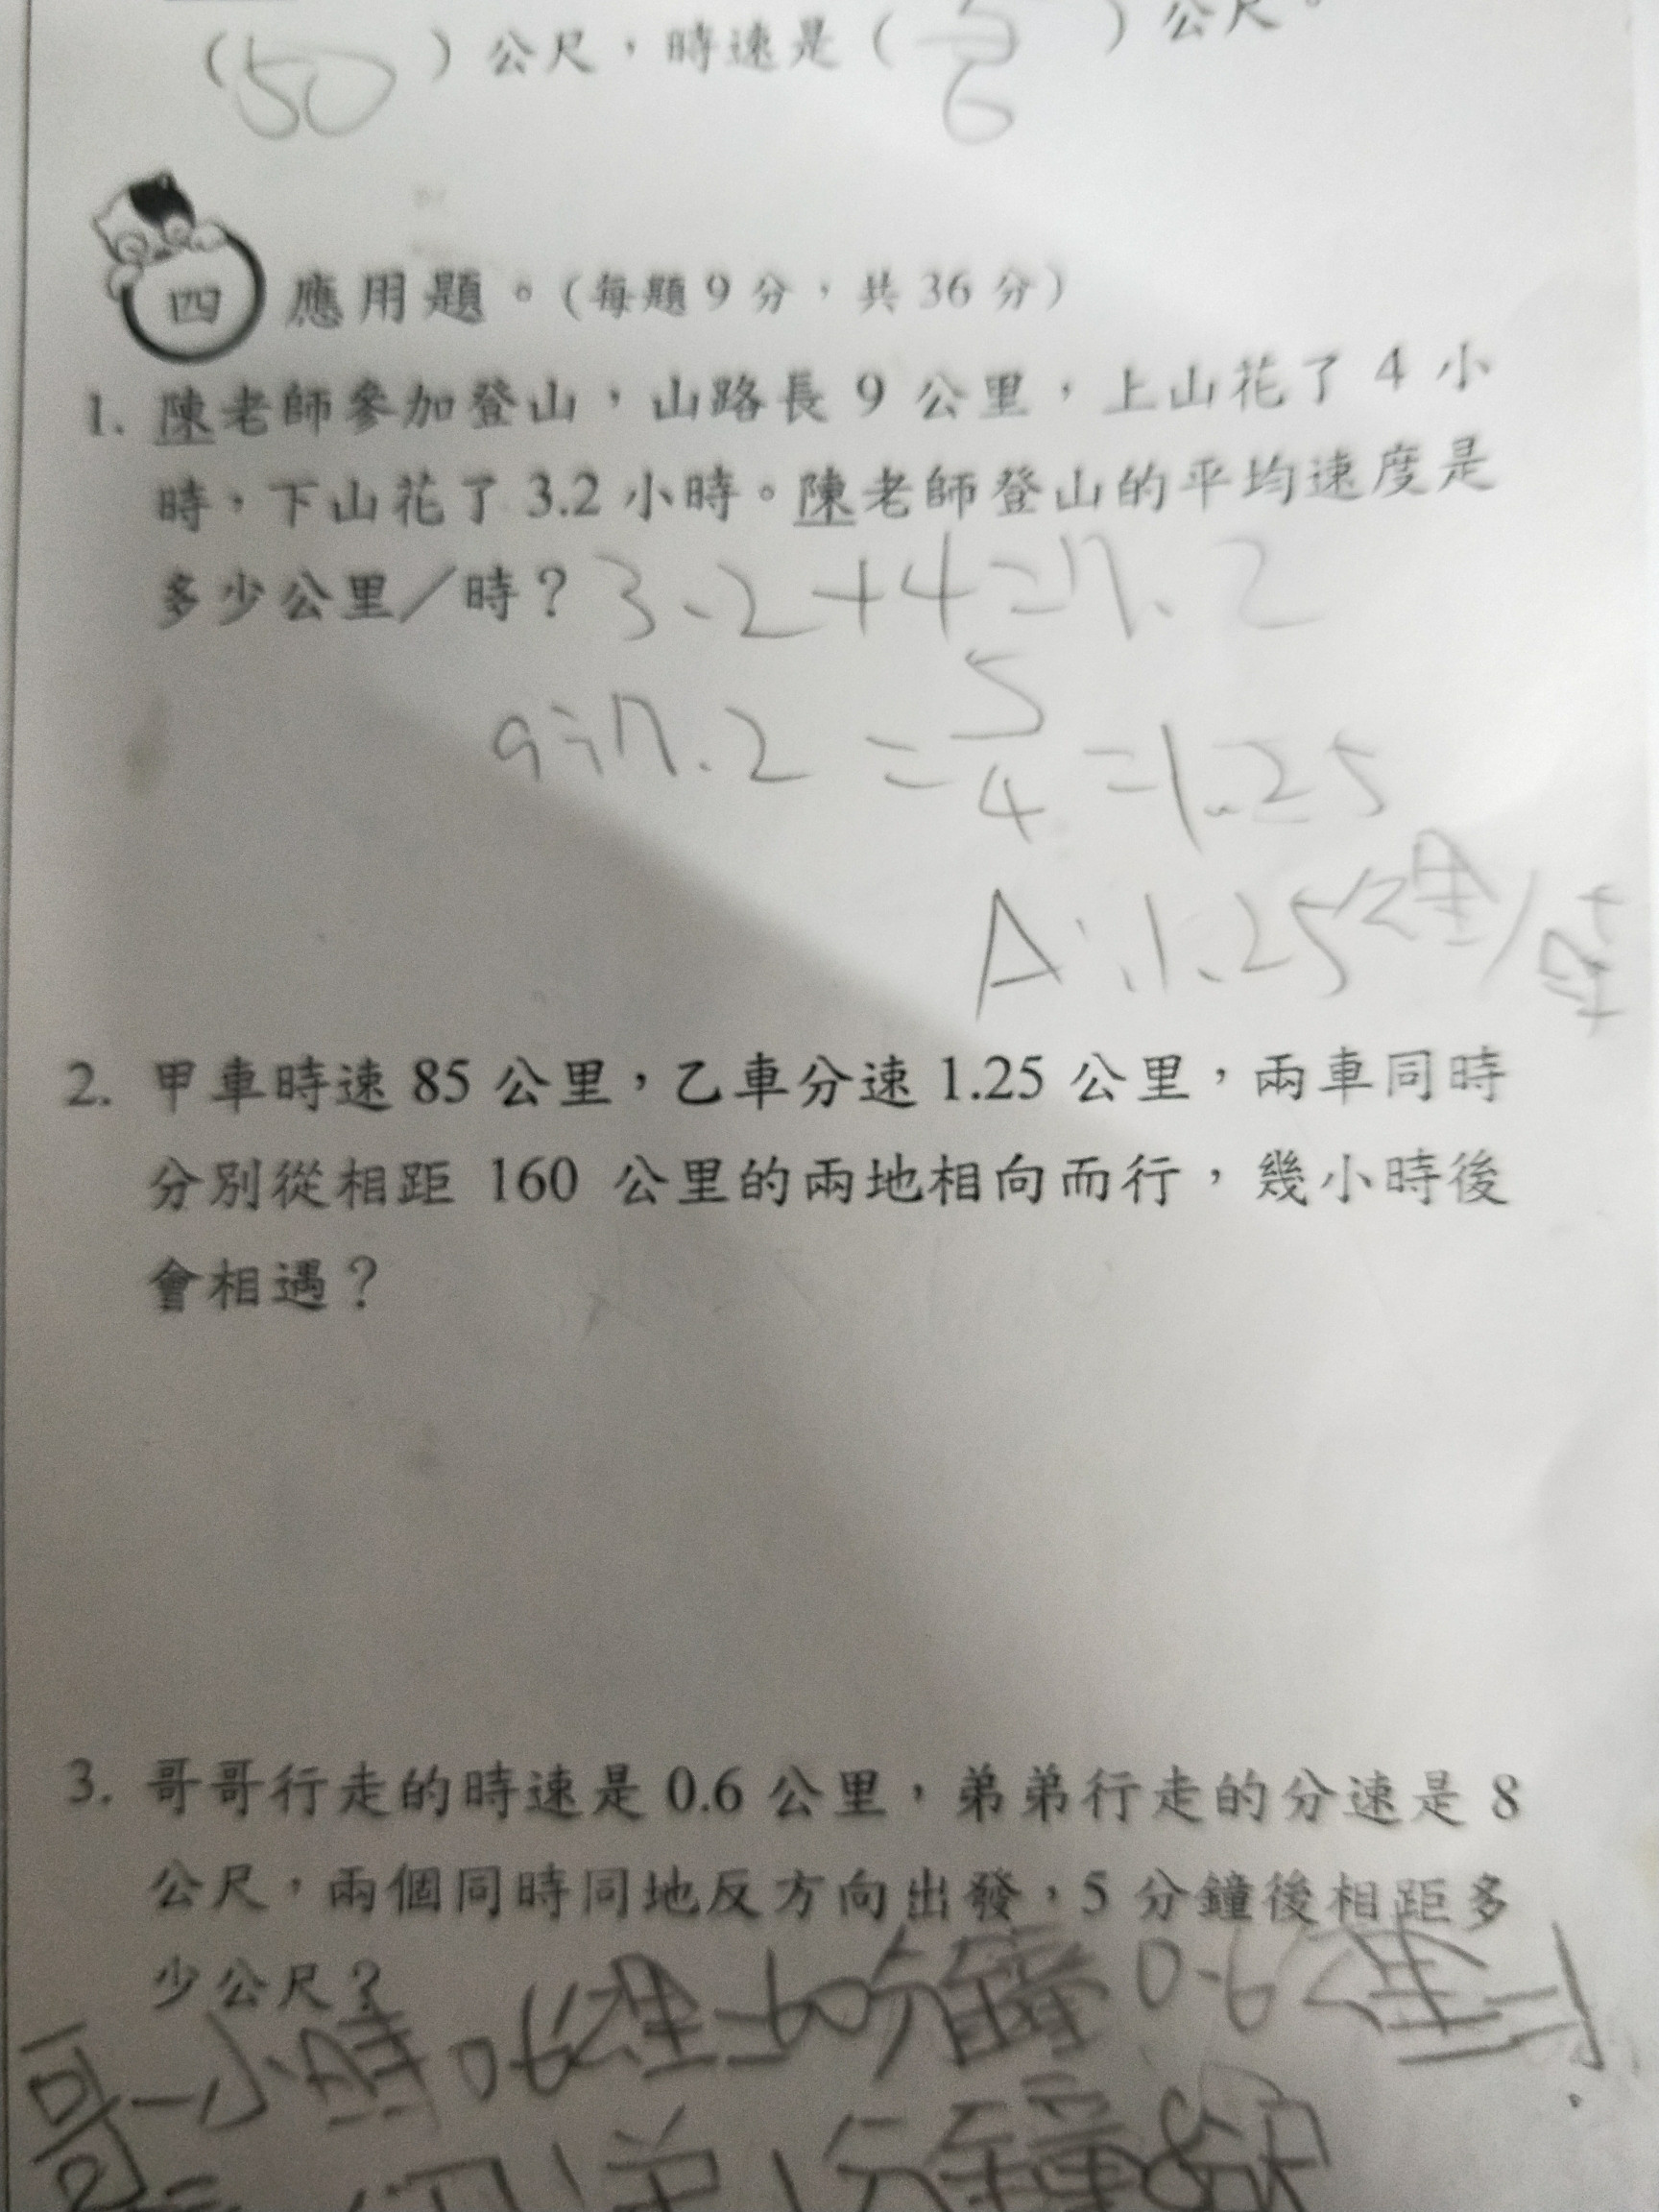 (50)公尺，時速是(5/6)公尺。
四 應用題。(每題9分，共36分)
1. 陳老師參加登山，山路長9公里，上山花了4小
時，下山花了3.2小時。陳老師登山的平均速度是
多少公里／時？ 3.2+4=7.2
9÷7.2=5/4=1.25
A:1.25公里/時
2. 甲車時速85公里，乙車分速1.25公里，兩車同時
分別從相距160公里的兩地相向而行，幾小時後
會相遇？
3. 哥哥行走的時速是0.6公里，弟弟行走的分速是8
公尺，兩個同時同地反方向出發，5分鐘後相距多
少公尺？
哥一小時0.6公里=60分鐘0.6公里=1
1分鐘